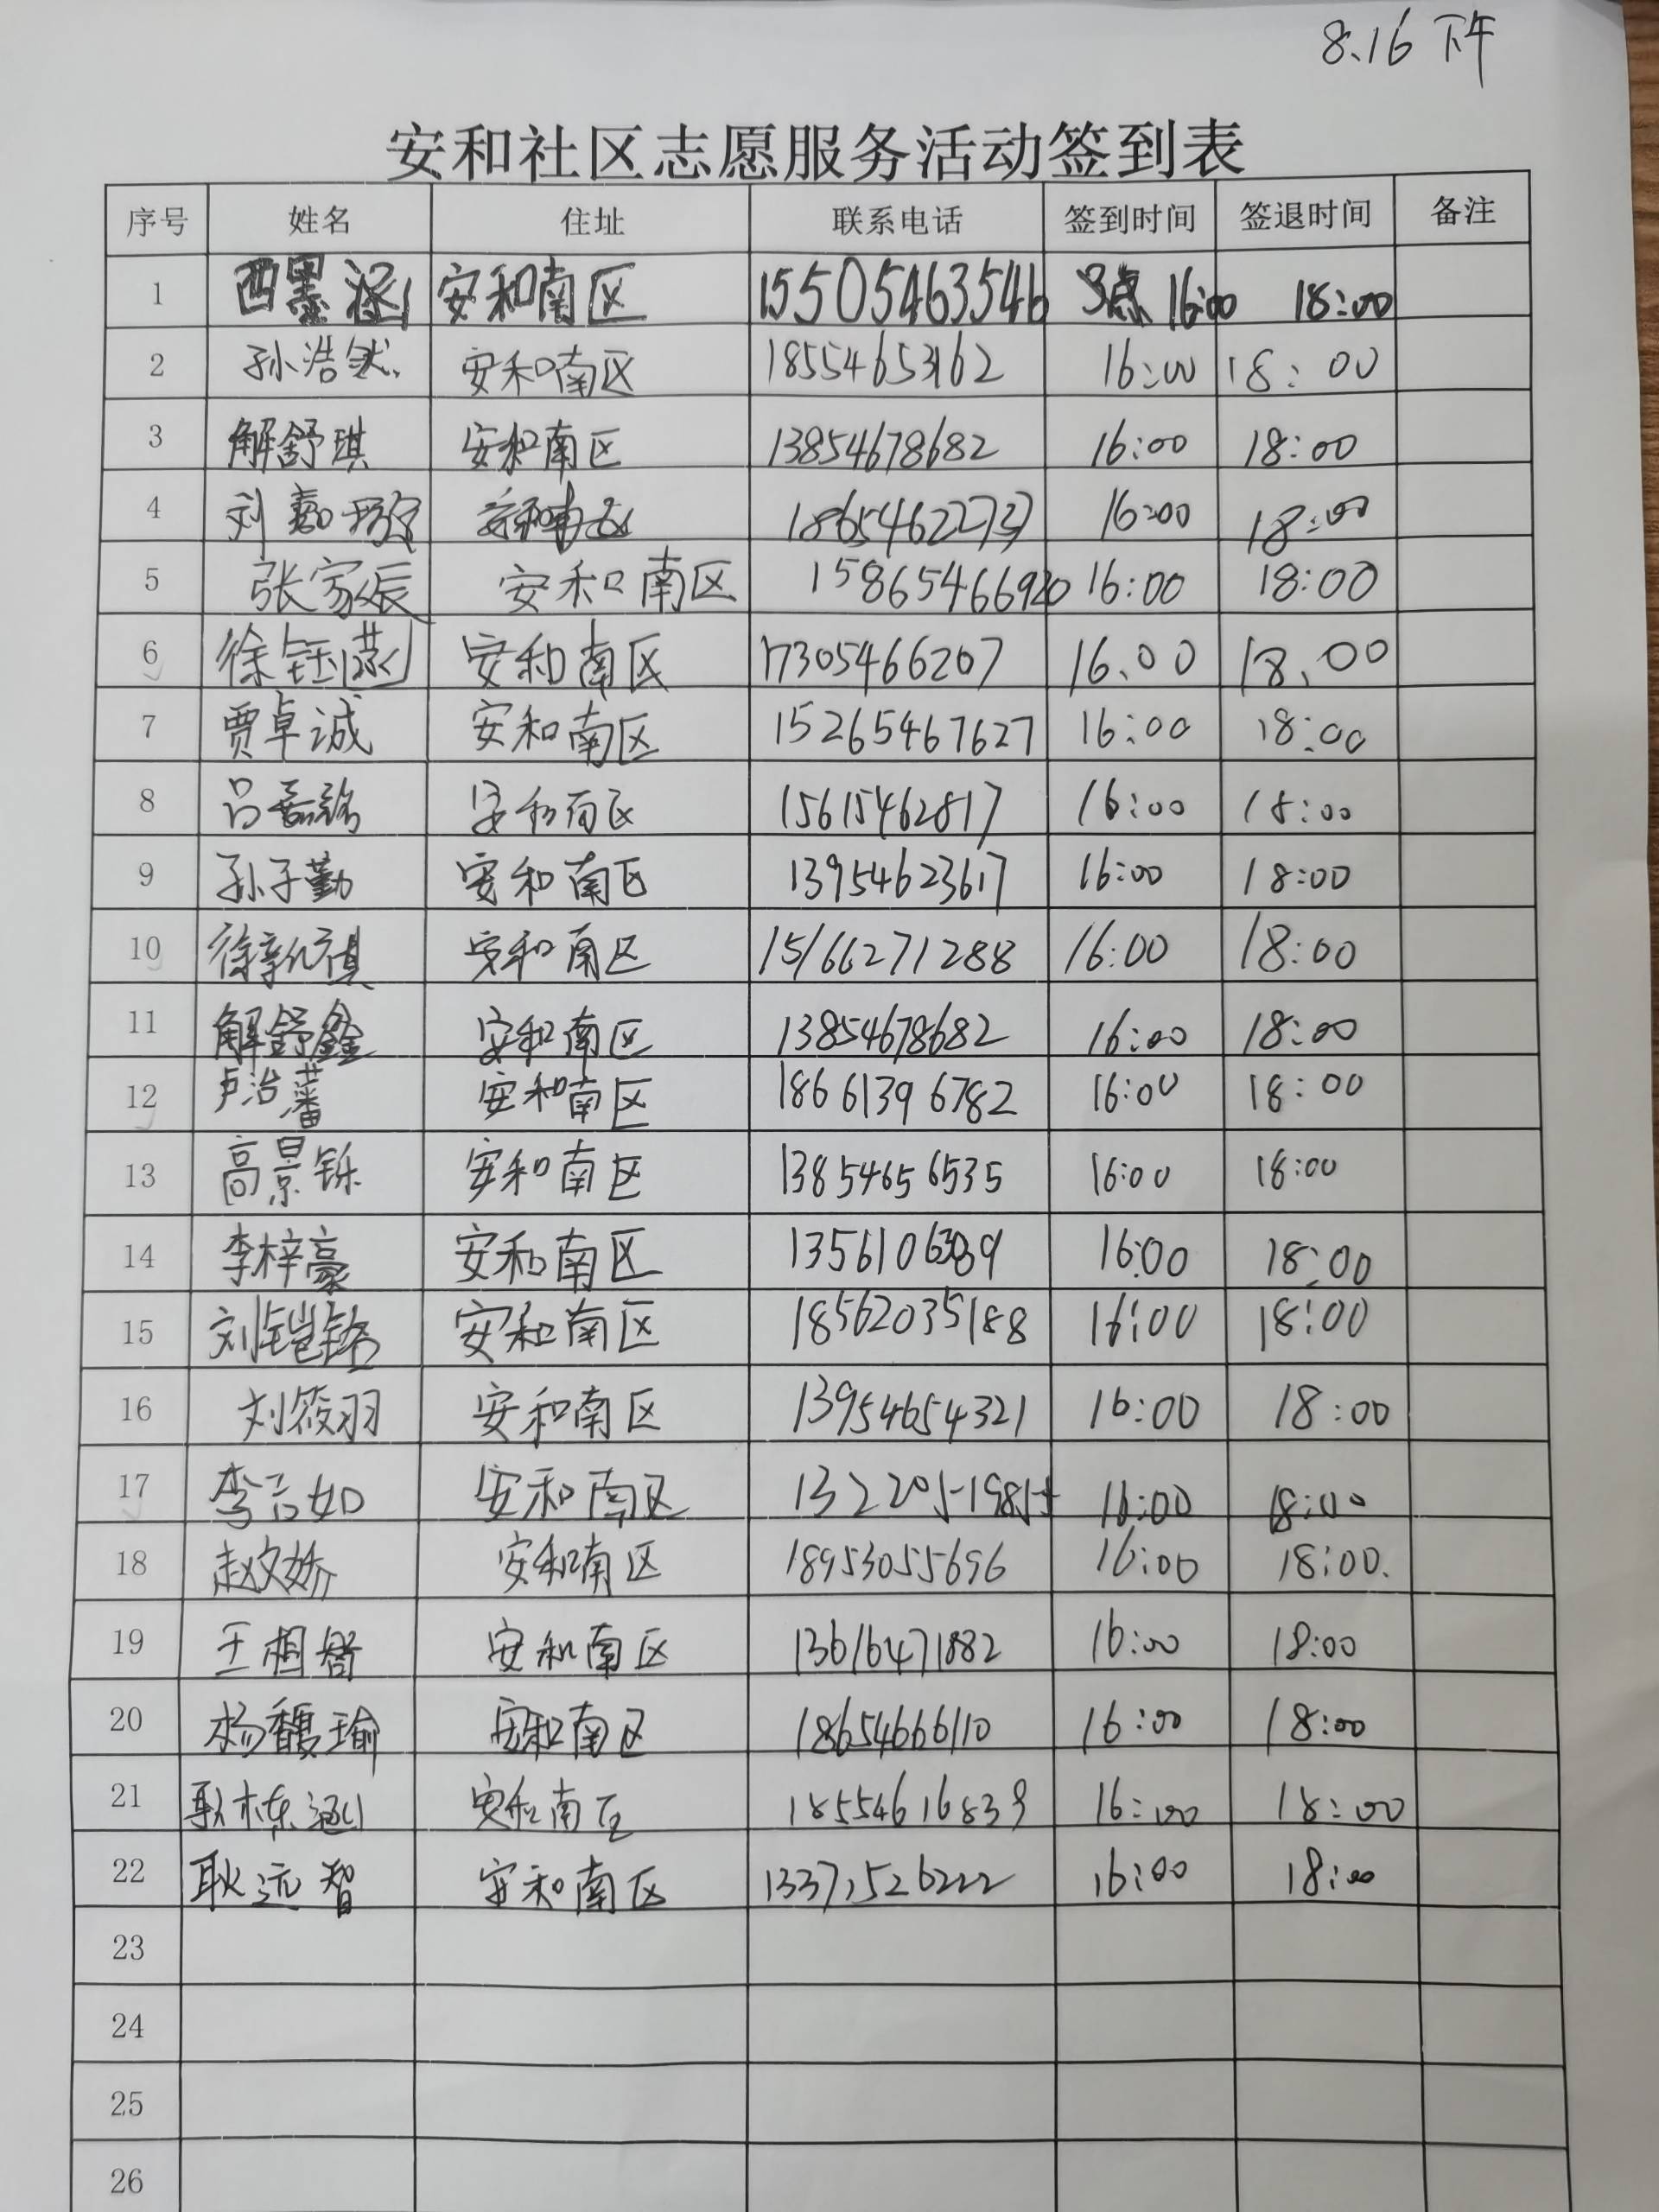 8.16 下午
安和社区志愿服务活动签到表
序号 姓名 住址 联系电话 签到时间 签退时间 备注
1 西墨涵 安和南区 15505463546 16:00 18:00
2 孙浩然 安和南区 18554653162 16:00 18:00
3 解舒琪 安和南区 13854678682 16:00 18:00
4 刘 安和南区 16:00 18:00
5 张家辰 安和南区 15865466920 16:00 18:00
6 徐钰涵 安和南区 17305466207 16.00 18.00
7 贾卓诚 安和南区 15265467627 16:00 18:00
8 吕 安和南区 15615462817 16:00 18:00
9 孙子勤 安和南区 13954623617 16:00 18:00
10 徐 安和南区 15166271288 16:00 18:00
11 解舒鑫 安和南区 13854678682 16:00 18:00
12 卢治藩 安和南区 18661396782 16:00 18:00
13 高景铄 安和南区 13854656535 16:00 18:00
14 李梓豪 安和南区 16:00 18:00
15 刘铠铭 安和南区 18562035188 16:00 18:00
16 刘筱羽 安和南区 13954654321 16:00 18:00
17 李言如 安和南区 16:00 18:00
18 赵文娇 安和南区 18953055696 16:00 18:00.
19 王相智 安和南区 13616471882 16:00 18:00
20 杨馥瑜 安和南区 18654666110 16:00 18:00
21 耿栋涵 安和南区 18554616839 16:00 18:00
22 耿远智 安和南区 13371526222 16:00 18:00
23
24
25
26